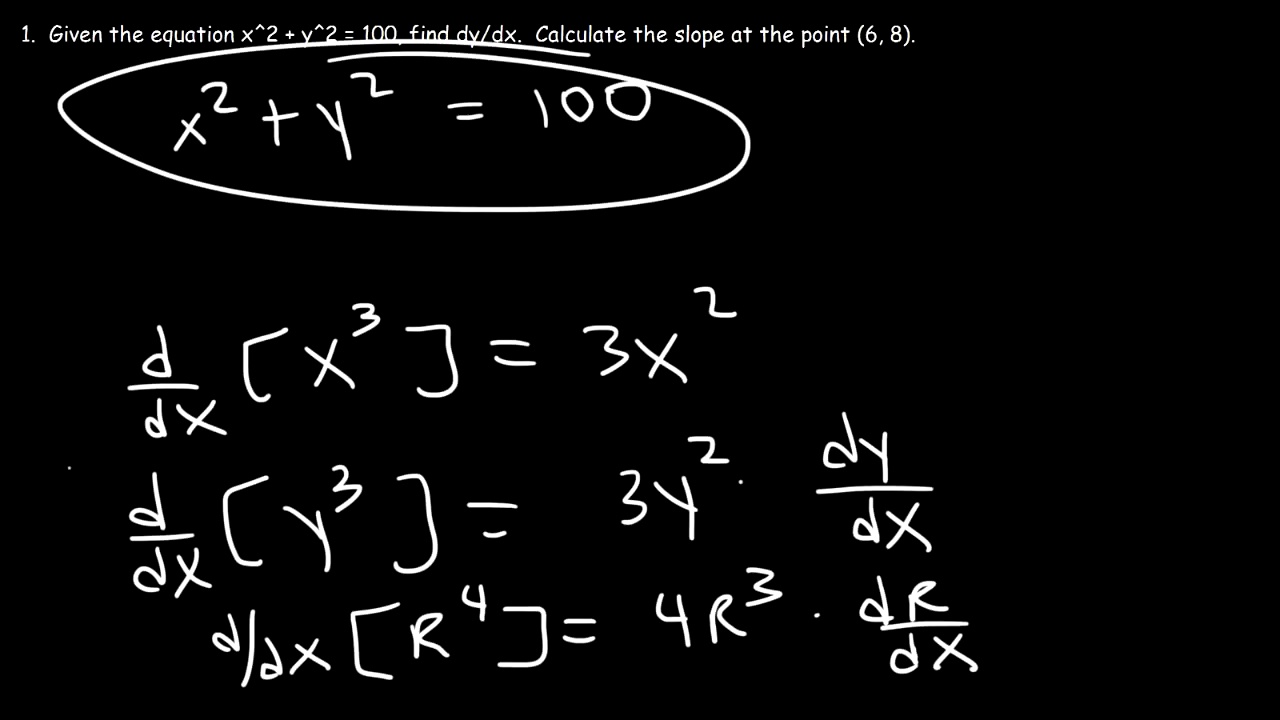 1. Given the equation x^2 + y^2 = 100, find dy/dx. Calculate the slope at the point (6, 8).
x² + y² = 100
d/dx [x³] = 3x²
d/dx [y³] = 3y² · dy/dx
d/dx [R⁴] = 4R³ · dR/dx